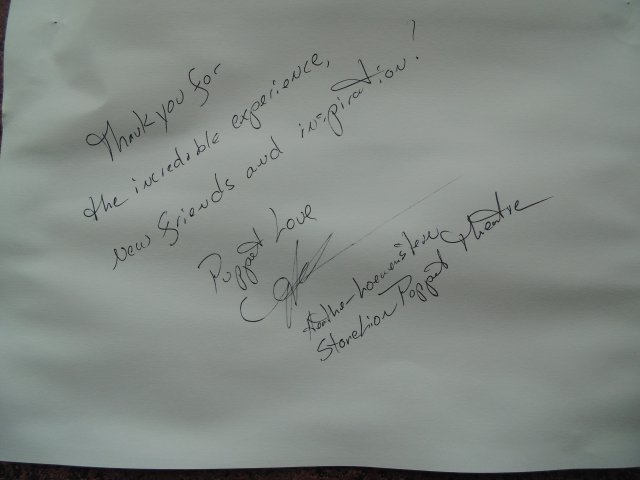 Thank you for
the incredable experience,
new friends and inspiration!
Puppet Love
Heather Loewenstern
StoneLion Puppet Theatre